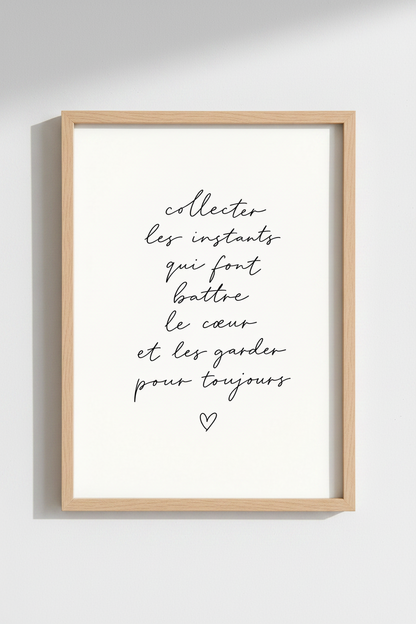 collecter
les instants
qui font
battre
le cœur
et les garder
pour toujours